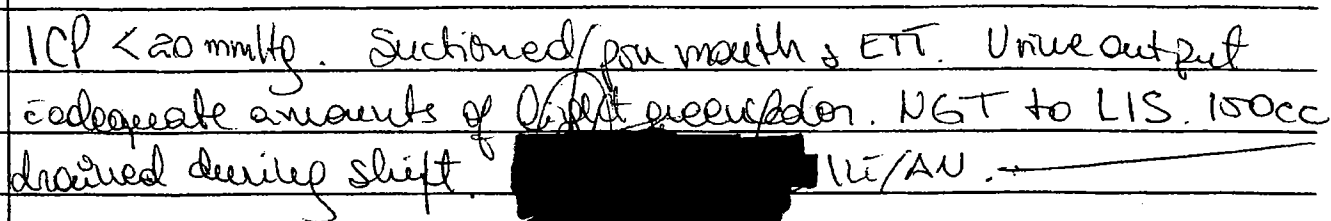 ICP < 20 mmHg. Suctioned/prn mouth & ETT. Urine output
c̄ adequate amounts of light green color. NGT to LIS. 150cc
drained during shift. LT/AN.